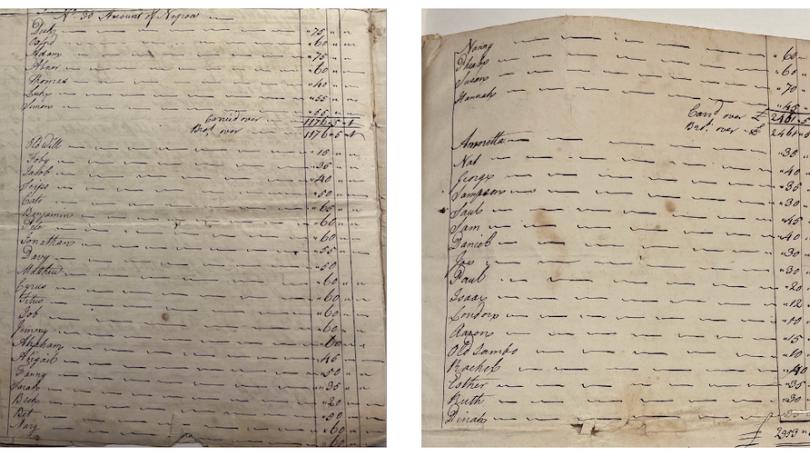 No 30 Amount of Negroes
Dick 75
60
Adam 75
60
Thomas 40
55
Simon 55
Carried over 1176 5
Brot over 1176 5
Old Will 10
Toby 35
Jacob 40
50
Cato 65
Benjamin 60
60
Jonathan 55
Davy 50
Mathew 60
Cyrus 60
Titus 60
Job 60
Jimmy 60
Abraham 45
Abigail 50
Fanny 35
Sarah 20
Beck 50
Bet 60
Mary 60
Nanny 60
60
Susan 70
Hannah 45
Card over £ 2461 5
Brot over £ 2461
Amoretta 30
Nat 40
George 35
Sampson 40
Saul 45
Sam 40
Daniel 30
Joe 30
Paul 20
Isaac 12
London 10
Aaron 15
Old Sambo 10
Rachel 40
Esther 35
Ruth 30
Dinah
£ 2953